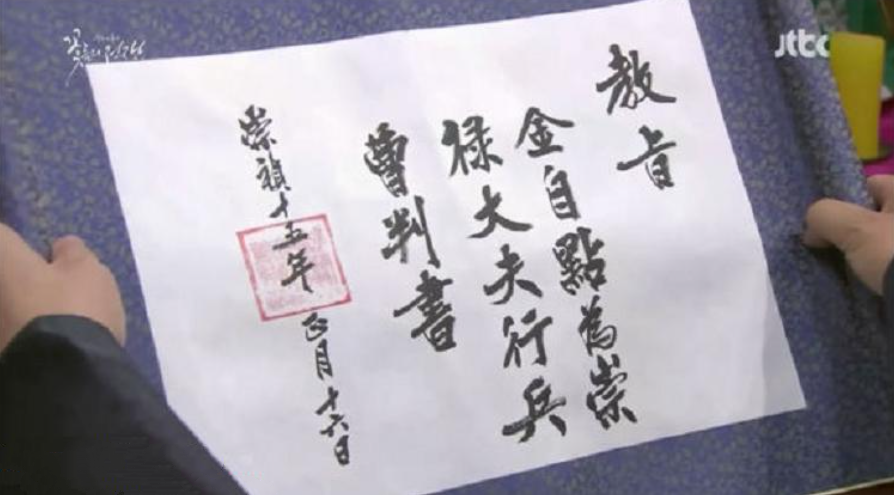 꽃들의 전쟁
jtbc
教旨
金自點為崇
禄大夫行兵
曹判書
崇禎十五年 正月十六日